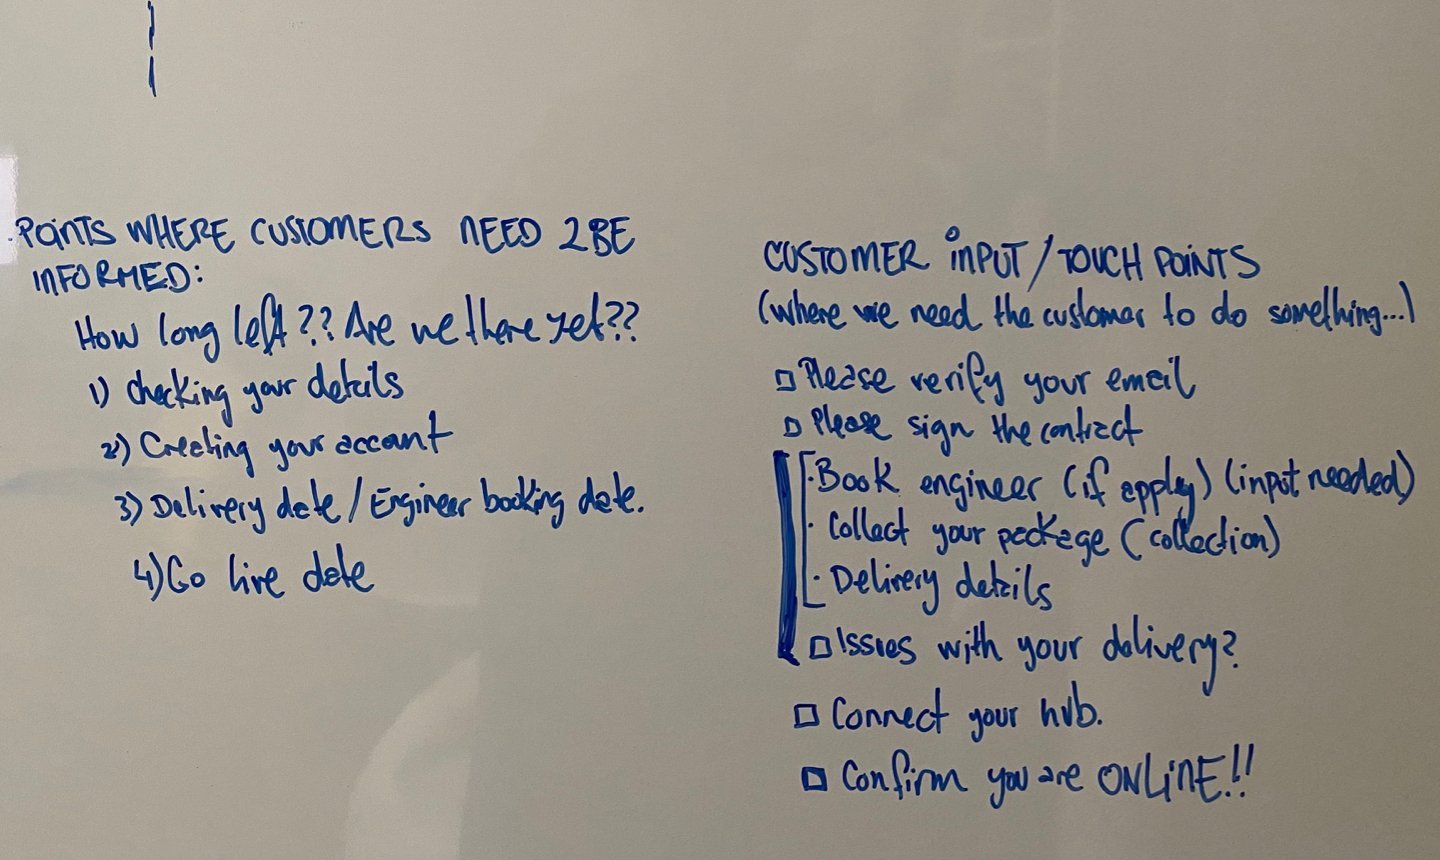 POINTS WHERE CUSTOMERS NEED 2BE
INFORMED:
How long left?? Are we there yet??
1) Checking your details
2) Creating your account
3) Delivery date / Engineer booking date.
4) Go live date
CUSTOMER INPUT / TOUCH POINTS
(where we need the customer to do something...)
□ Please verify your email
□ Please sign the contract
· Book engineer (if apply) (input needed)
· Collect your package (collection)
· Delivery details
□ Issues with your delivery?
□ Connect your hub.
□ Confirm you are ONLINE!!